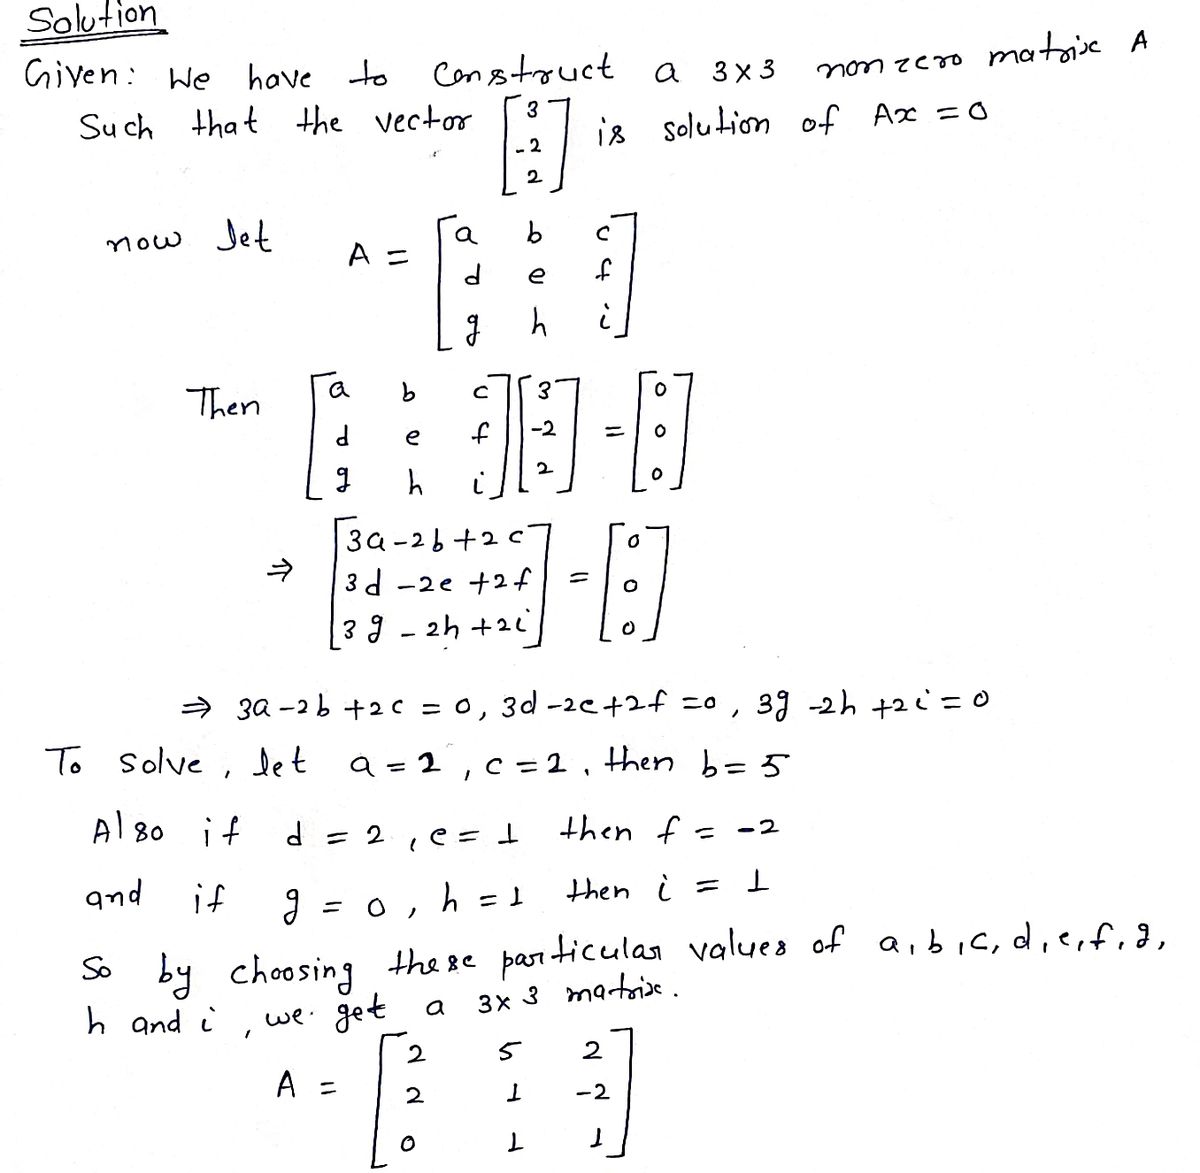 Solution
Given: We have to Construct a 3×3 non zero matrix A
Such that the vector [3 -2 2] is solution of Ax = 0
now let A = [a b c
d e f
g h i]
Then [a b c
d e f
g h i] [3 -2 2] = [0 0 0]
⇒ [3a - 2b + 2c
3d - 2e + 2f
3g - 2h + 2i] = [0 0 0]
⇒ 3a - 2b + 2c = 0, 3d - 2e + 2f = 0, 3g - 2h + 2i = 0
To solve, let a = 2, c = 2, then b = 5
Also if d = 2, e = 1 then f = -2
and if g = 0, h = 1 then i = 1
So by choosing these particular values of a, b, c, d, e, f, g,
h and i, we get a 3×3 matrix.
A = [2 5 2
2 1 -2
0 1 1]